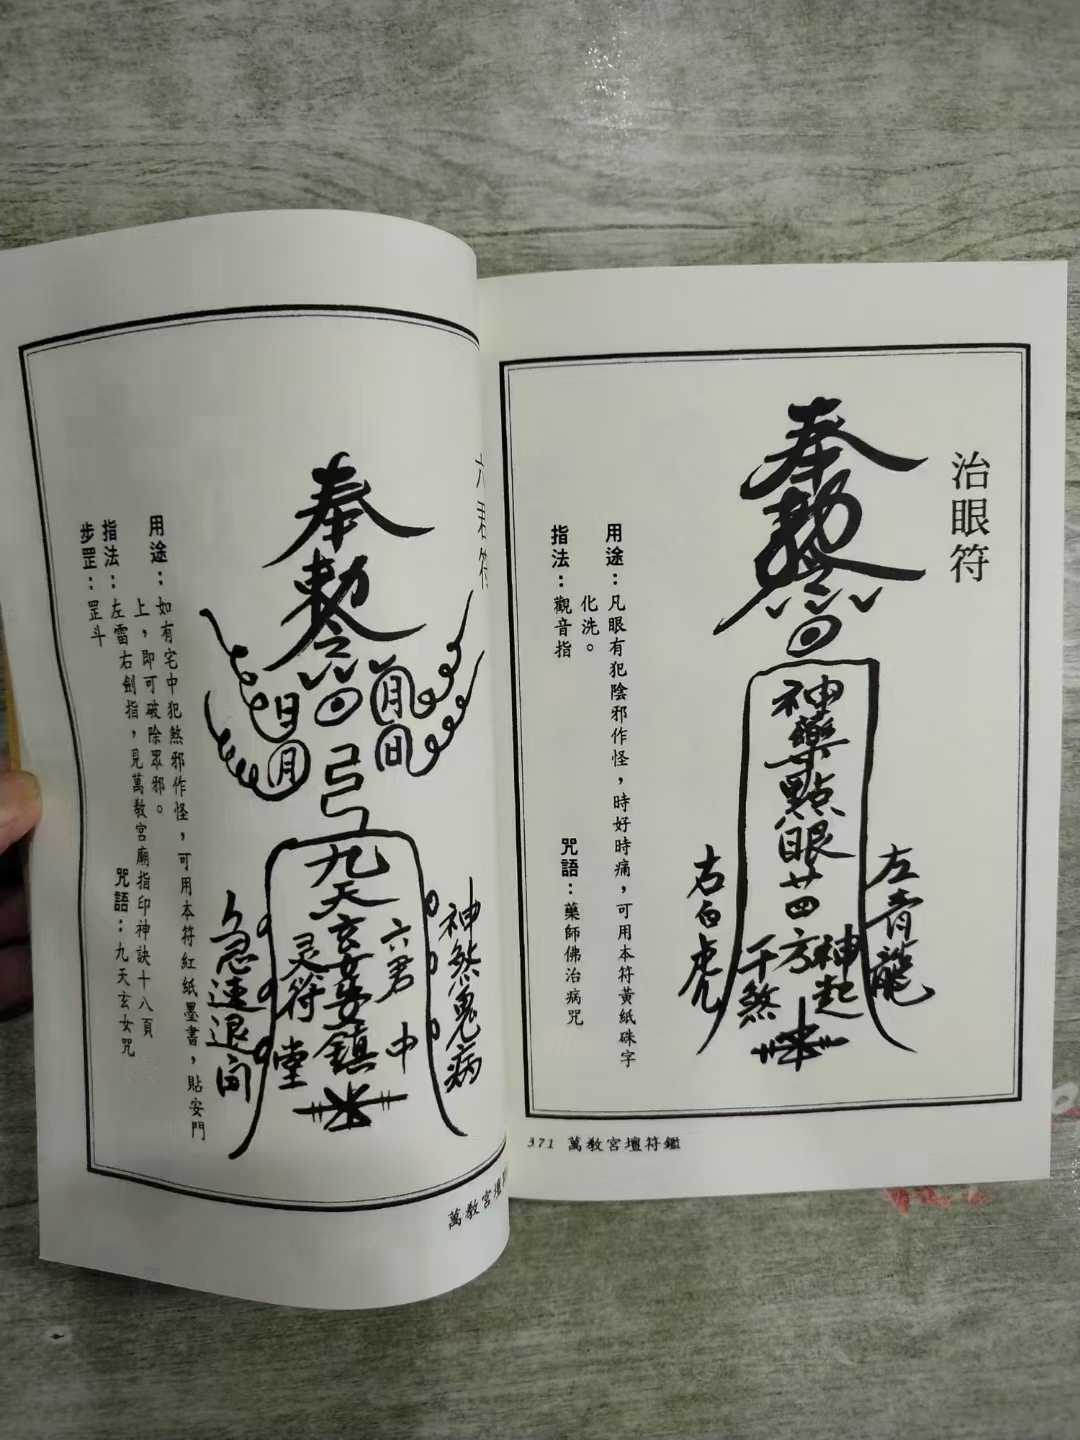 治眼符
奉勅令
神藥點眼廿四方
神起
千煞
左青龍
右白虎
用途：凡眼有犯陰邪作怪，時好時痛，可用本符黃紙硃字
化洗。
咒語：藥師佛治病咒
指法：觀音指
371 萬教宮壇符鑑
六君符
奉勅令
日
月
月
日
九天玄女安鎮
六君
灵符
中
堂
神煞鬼病
急速退向
用途：如有宅中犯煞邪作怪，可用本符紅紙墨書，貼安門
上，即可破除眾邪。
指法：左雷右劍指，見萬教宮廟指印神訣十八頁
咒語：九天玄女咒
步罡：罡斗
萬教宮壇